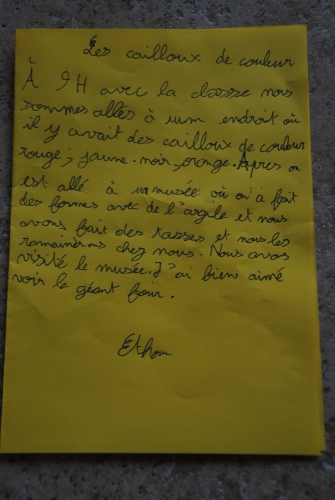 Les cailloux de couleur
À 9H avec la classse nous
sommes allés à un endroit où
il y avait des cailloux de couleur
rouge, jaune. noir, orange. Apres on
est allé à un musée où on à fait
des formes avec de l'argile et nous
avons fait des tasses et nous les
ramènerons chez nous. Nous avos
visité le musée. J'ai bien aimé
voir le géant four.
Ethan